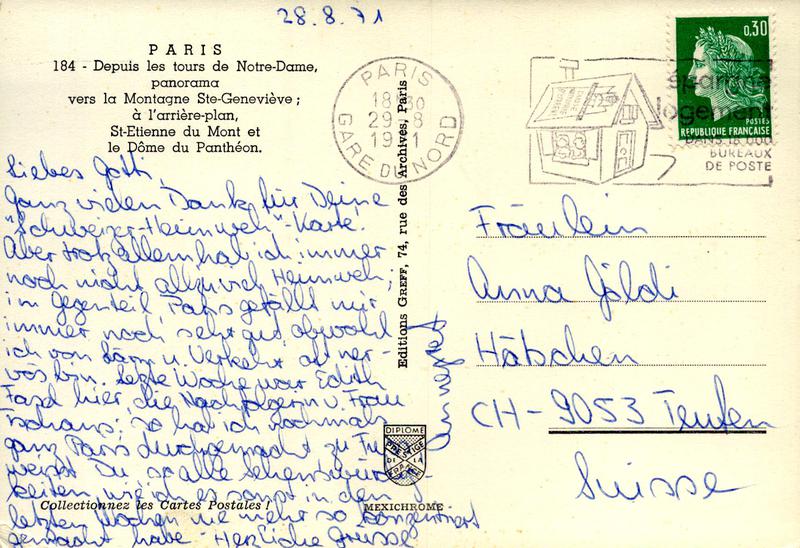 28.8.71
PARIS
184 - Depuis les tours de Notre-Dame,
panorama
vers la Montagne Ste-Geneviève ;
à l'arrière-plan,
St-Etienne du Mont et
le Dôme du Panthéon.
Liebes Gotti,
Ganz vielen Dank für Deine
"Schweizer-Heimweh"-Karte.
Aber trotz allem hab ich immer
noch nicht allzuviel Heimweh;
im Gegenteil, Paris gefällt mir
immer noch sehr gut, obwohl
ich von Lärm u. Verkehr oft ner-
vös bin. Letzte Woche war Edith
Fasd hier, die Nachfolgerin v. Frau
so hab ich nochmals
ganz Paris durchgemacht zu Fu
weisst Du so alle Sehenswürdig-
keiten wie ich es sonst in den
letzten Wochen nie mehr so konzentriert
gemacht habe - Herzliche Grüsse
Annegret
Collectionnez les Cartes Postales !
Editions GREFF, 74, rue des Archives, Paris
DIPLOME
PRESTIGE
DE LA
FRANCE
MEXICHROME
PARIS
18 30
29-8
1971
GARE DU NORD
épargne
logement
DANS 18 000
BUREAUX
DE POSTE
0,30
POSTES
REPUBLIQUE FRANÇAISE
Fräulein
Anna Göldi
Hätschen
CH-9053 Teufen
Suisse